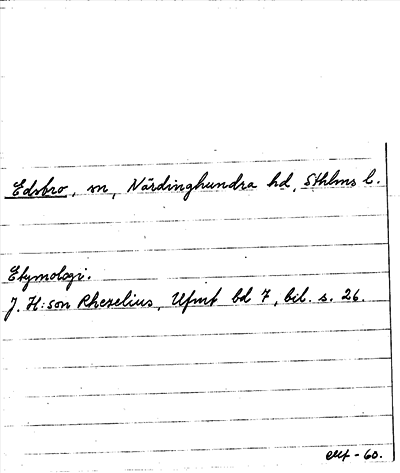 Edsbro, sn, Närdinghundra hd, Sthlms l.
Etymologi.
J. H:son Rhezelius, Ufmt bd 7, bil. s. 26.
-60.